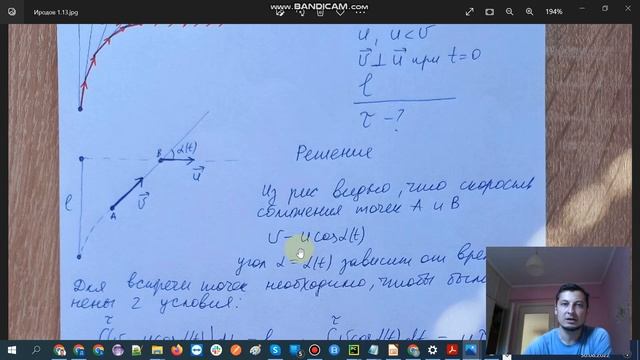 Иродов 1.13.jpg
WWW.BANDICAM.COM
194%
u, u<v
v⃗ ⊥ u⃗ при t=0
l
τ - ?
B
α(t)
u⃗
l
v⃗
A
Решение
Из рис видно, что скорость
сближения точек A и B
v - u cosα(t)
угол α = α(t) зависит от врем
Для встречи точек необходимо, чтобы были
нены 2 условия:
30.08.2022